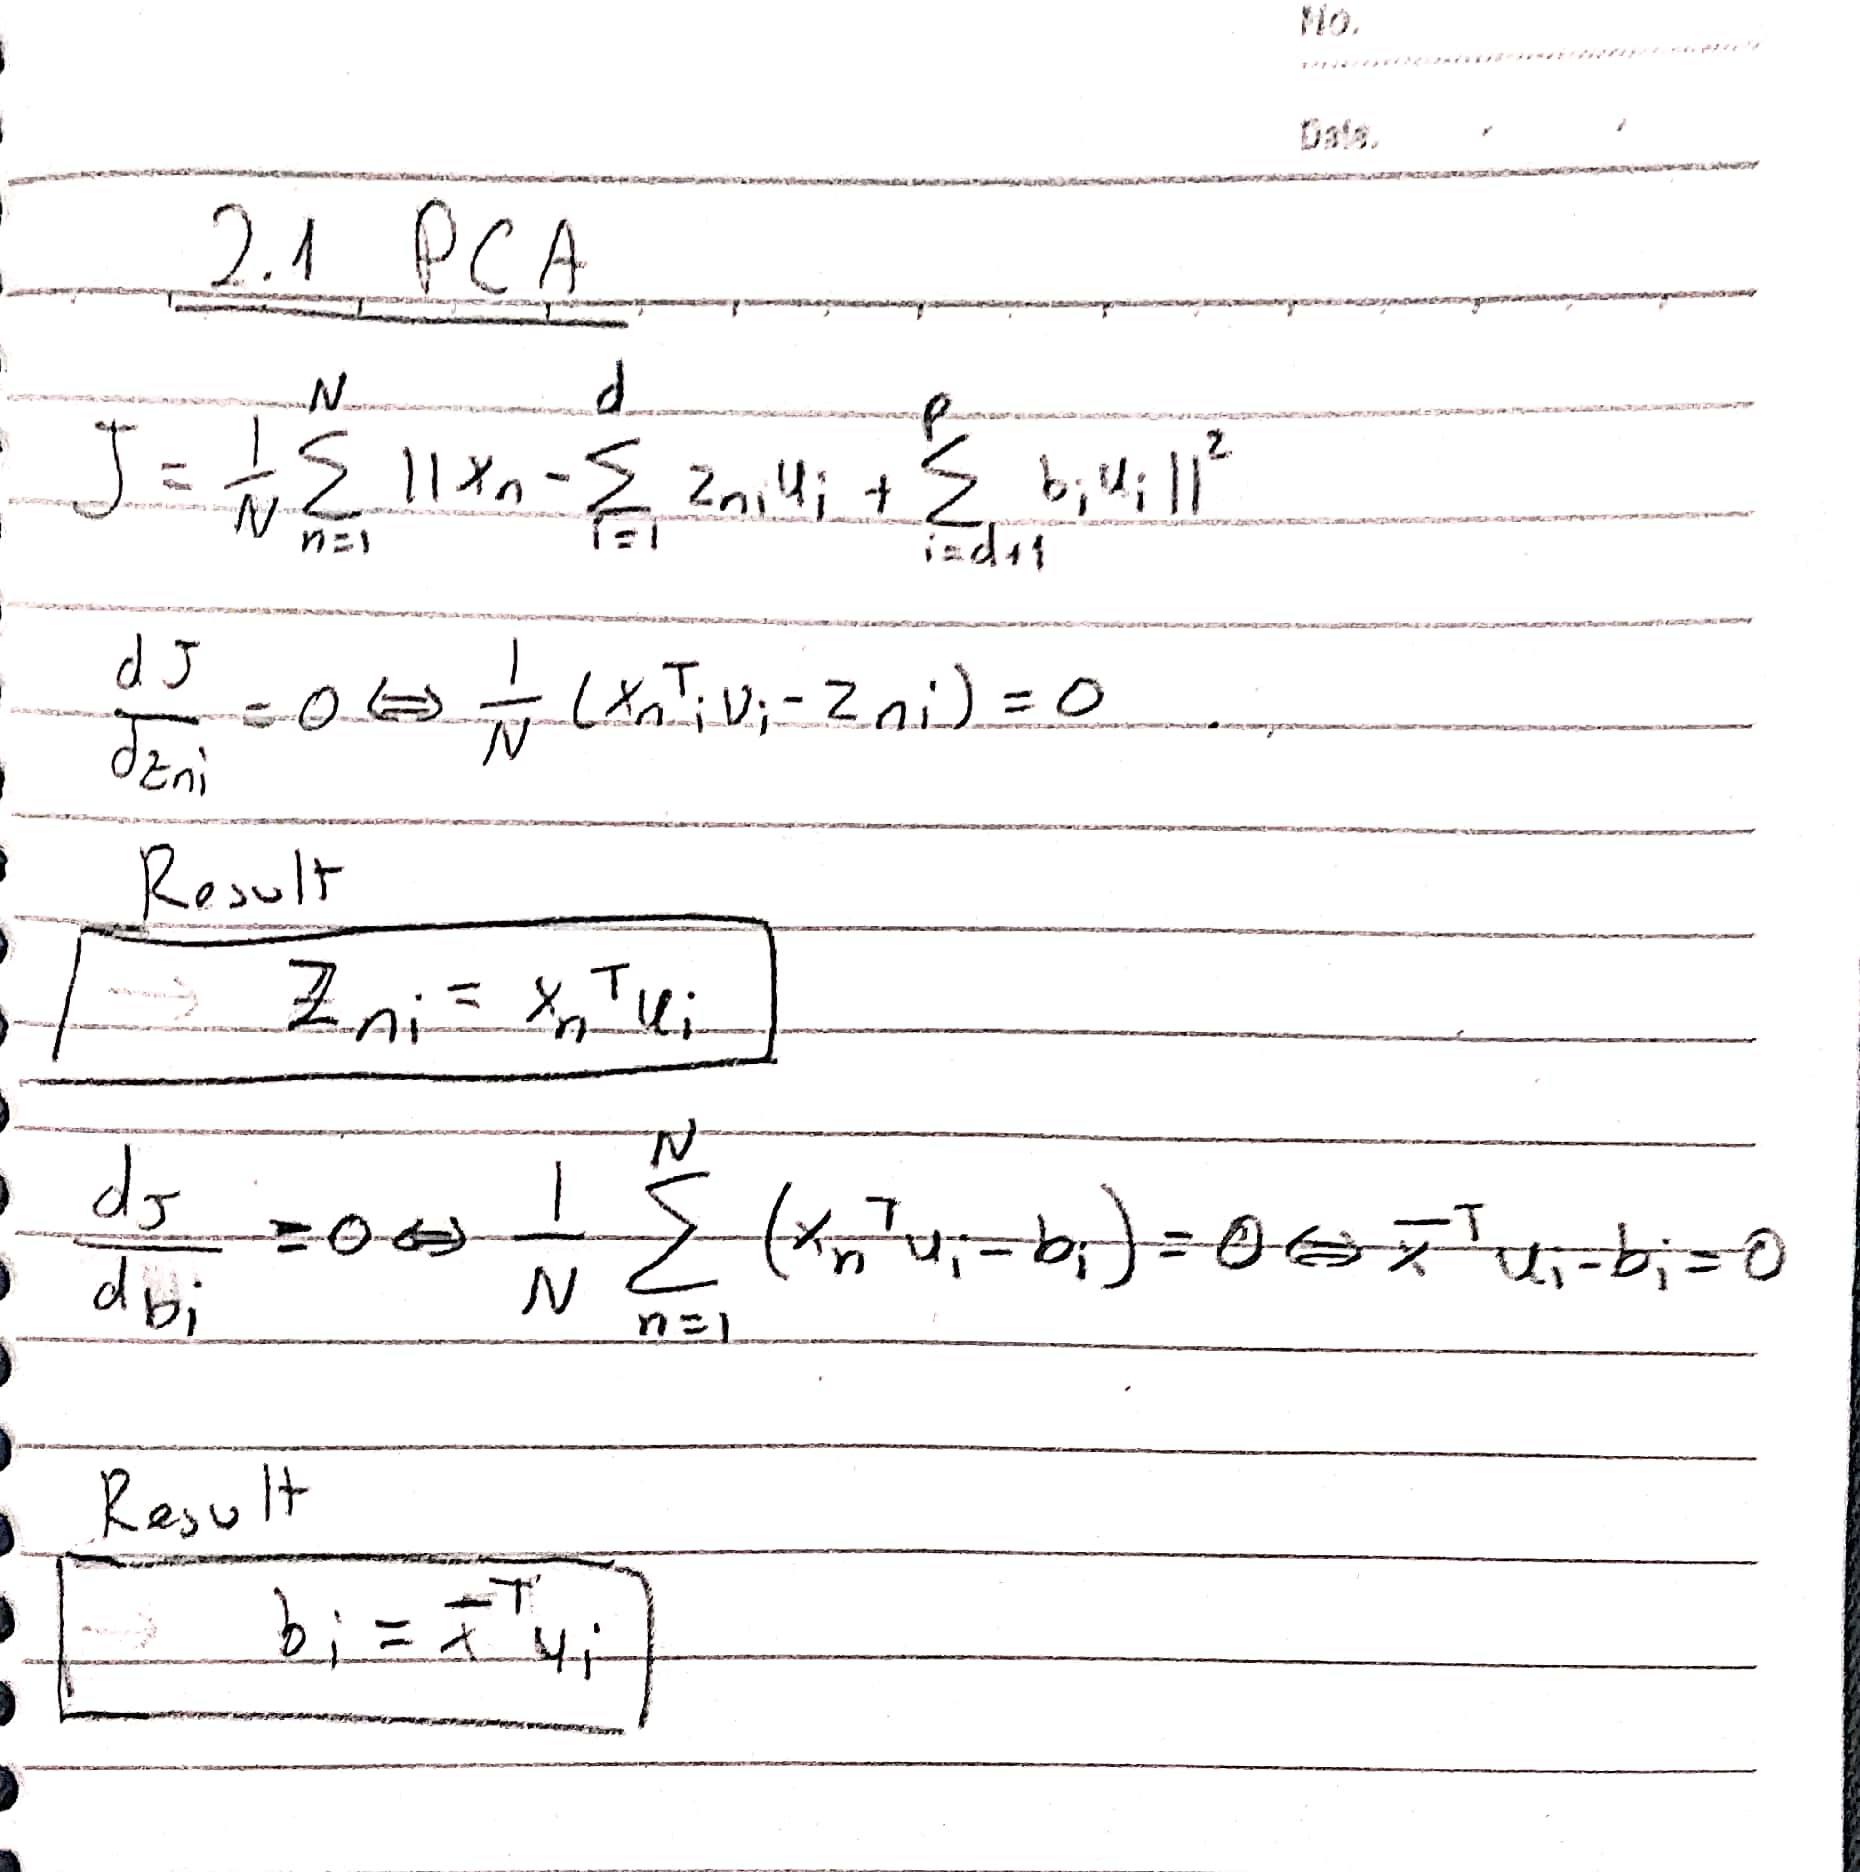 No.
Date.
2.1 PCA
J = 1/N ∑_{n=1}^{N} ||x_n - ∑_{i=1}^{d} z_{ni} u_i + ∑_{i=d+1}^{p} b_i u_i||^2
dJ/dz_{ni} = 0 ⇔ 1/N (x_n^T_i u_i - z_{ni}) = 0
Result
→ z_{ni} = x_n^T u_i
dJ/db_i = 0 ⇔ 1/N ∑_{n=1}^{N} (x_n^T u_i - b_i) = 0 ⇔ x̄^T u_i - b_i = 0
Result
→ b_i = x̄^T u_i